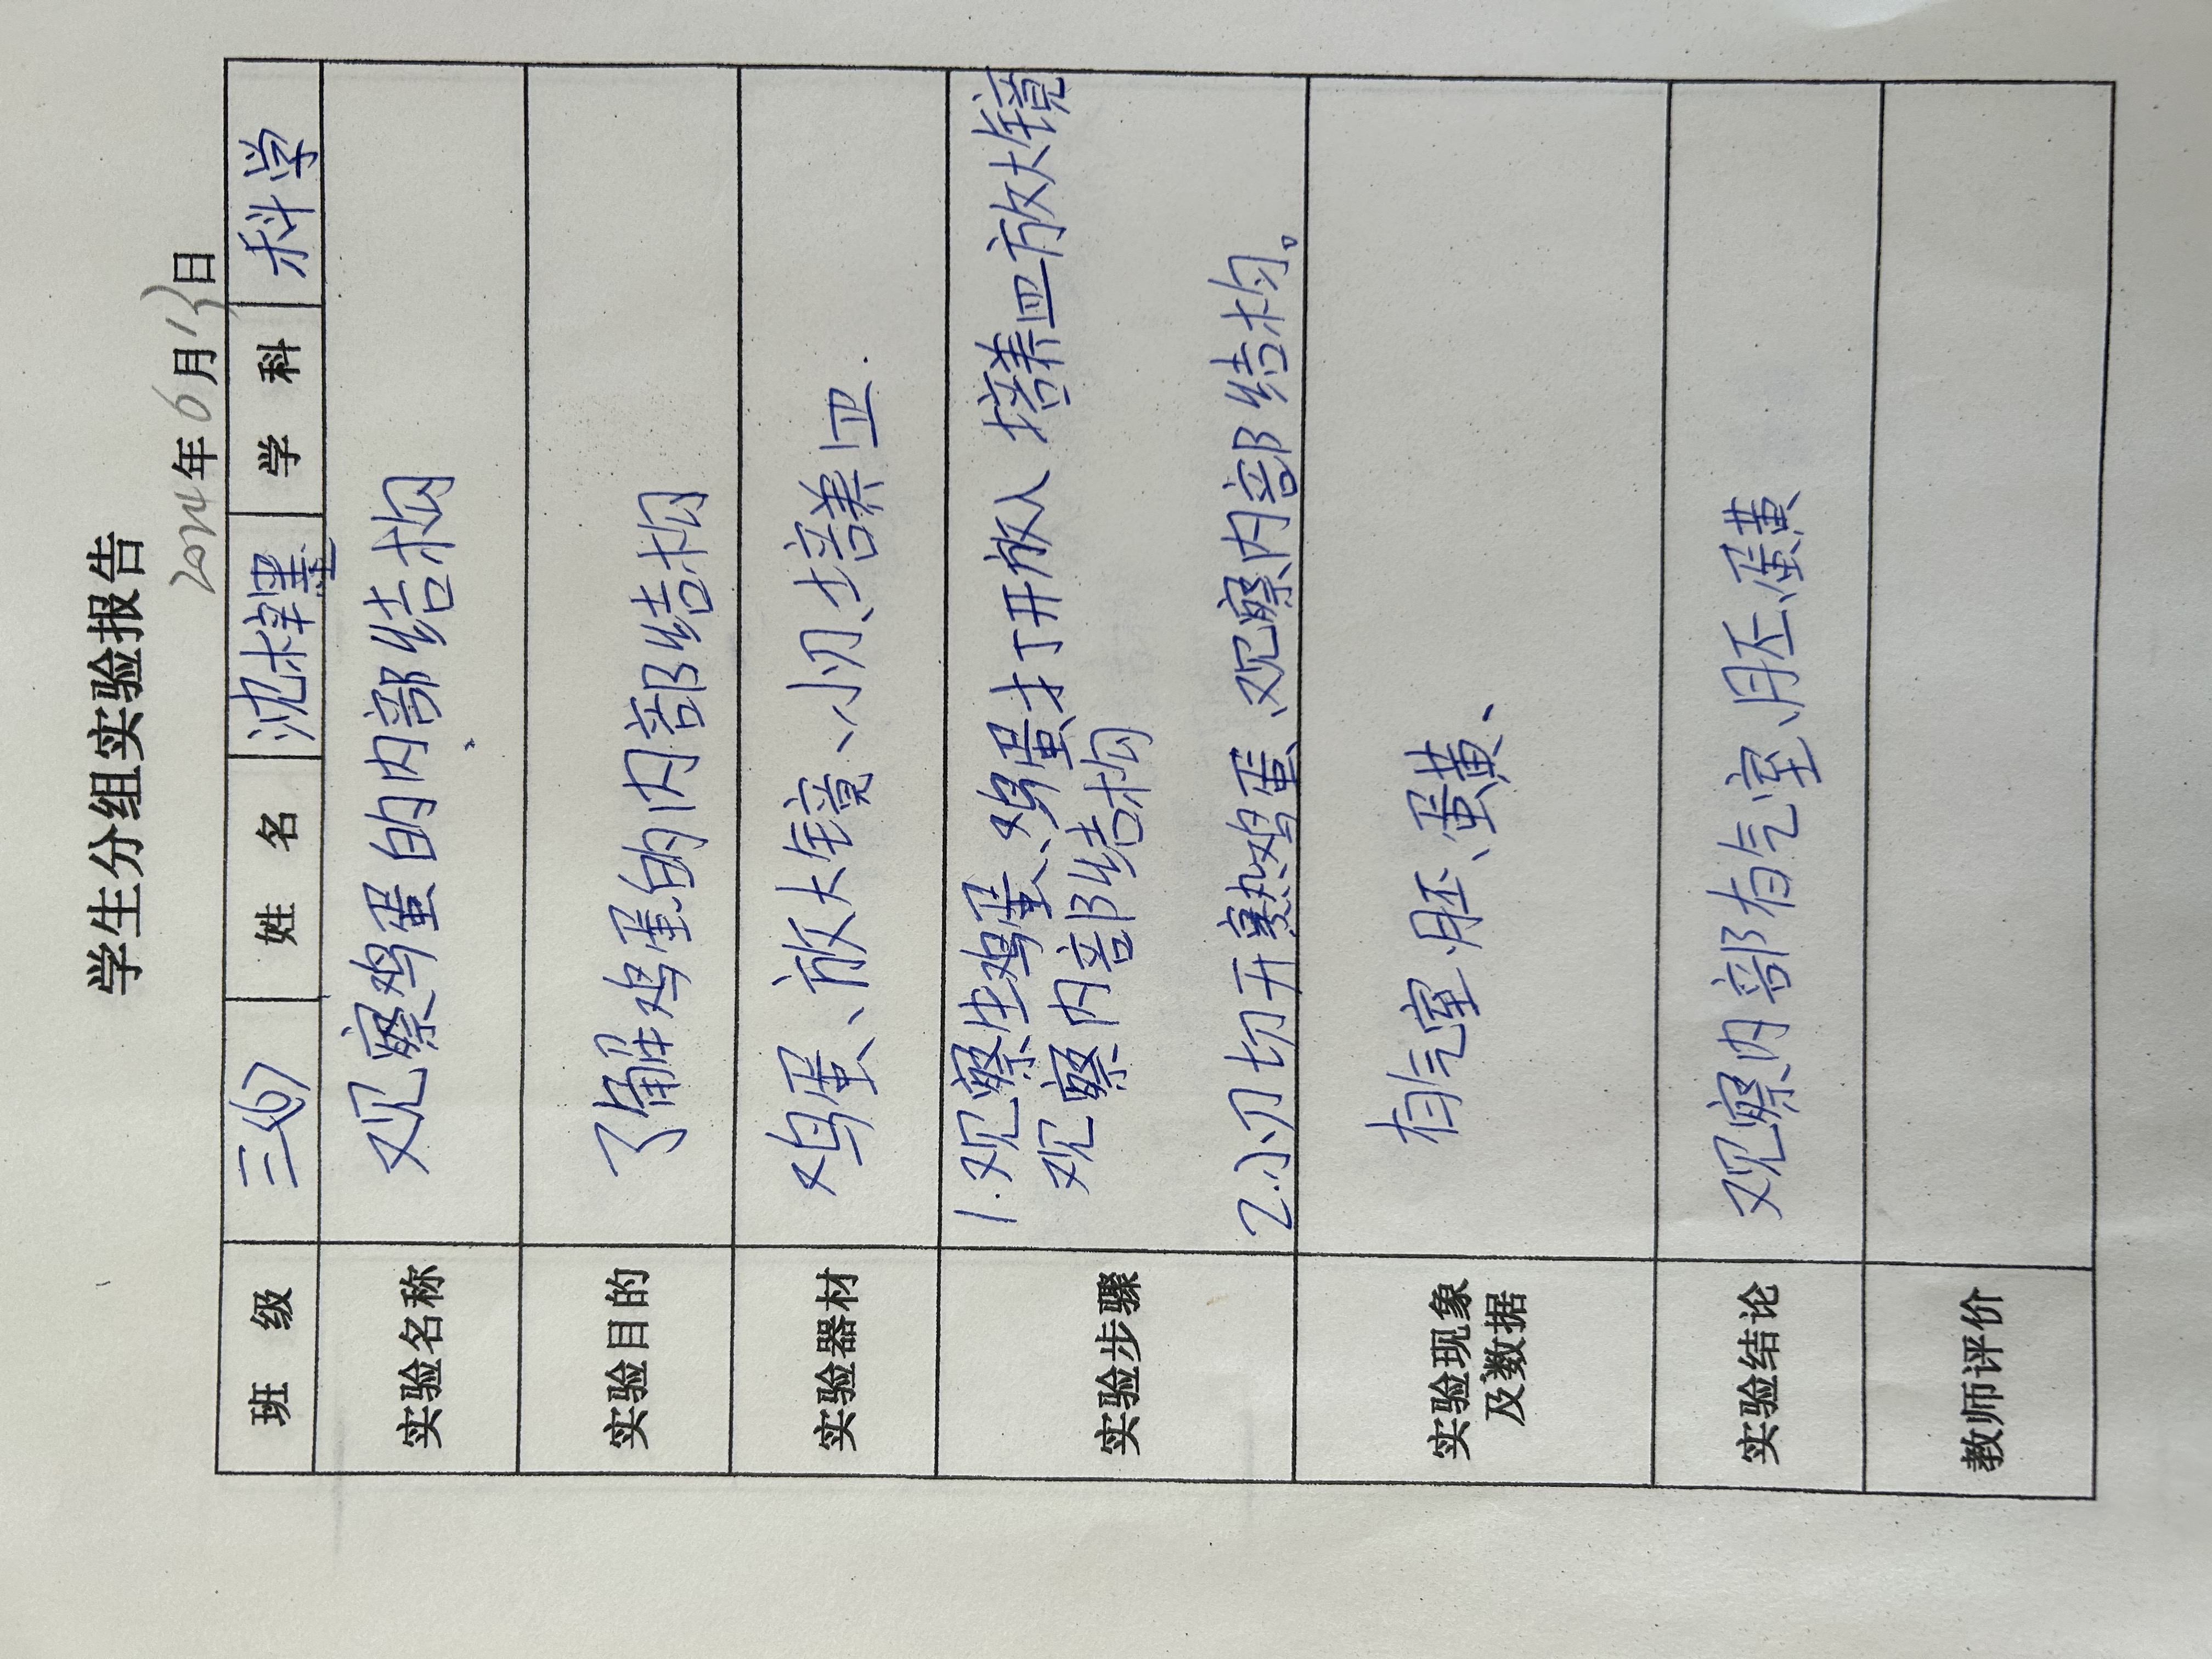 学生分组实验报告
2024年6月13日
班 级 三(6) 姓 名 沈梓墨 学 科 科学
实验名称 观察鸡蛋的内部结构
实验目的 了解鸡蛋的内部结构
实验器材 鸡蛋、放大镜、小刀、培养皿.
实验步骤 1.观察生鸡蛋、鸡蛋打开放入培养皿方放大镜
观察内部结构
2.小刀切开熟鸡蛋、观察内部结构。
实验现象
及数据 有气室.胚、蛋黄、
实验结论 观察内部有气室、胚、蛋黄
教师评价